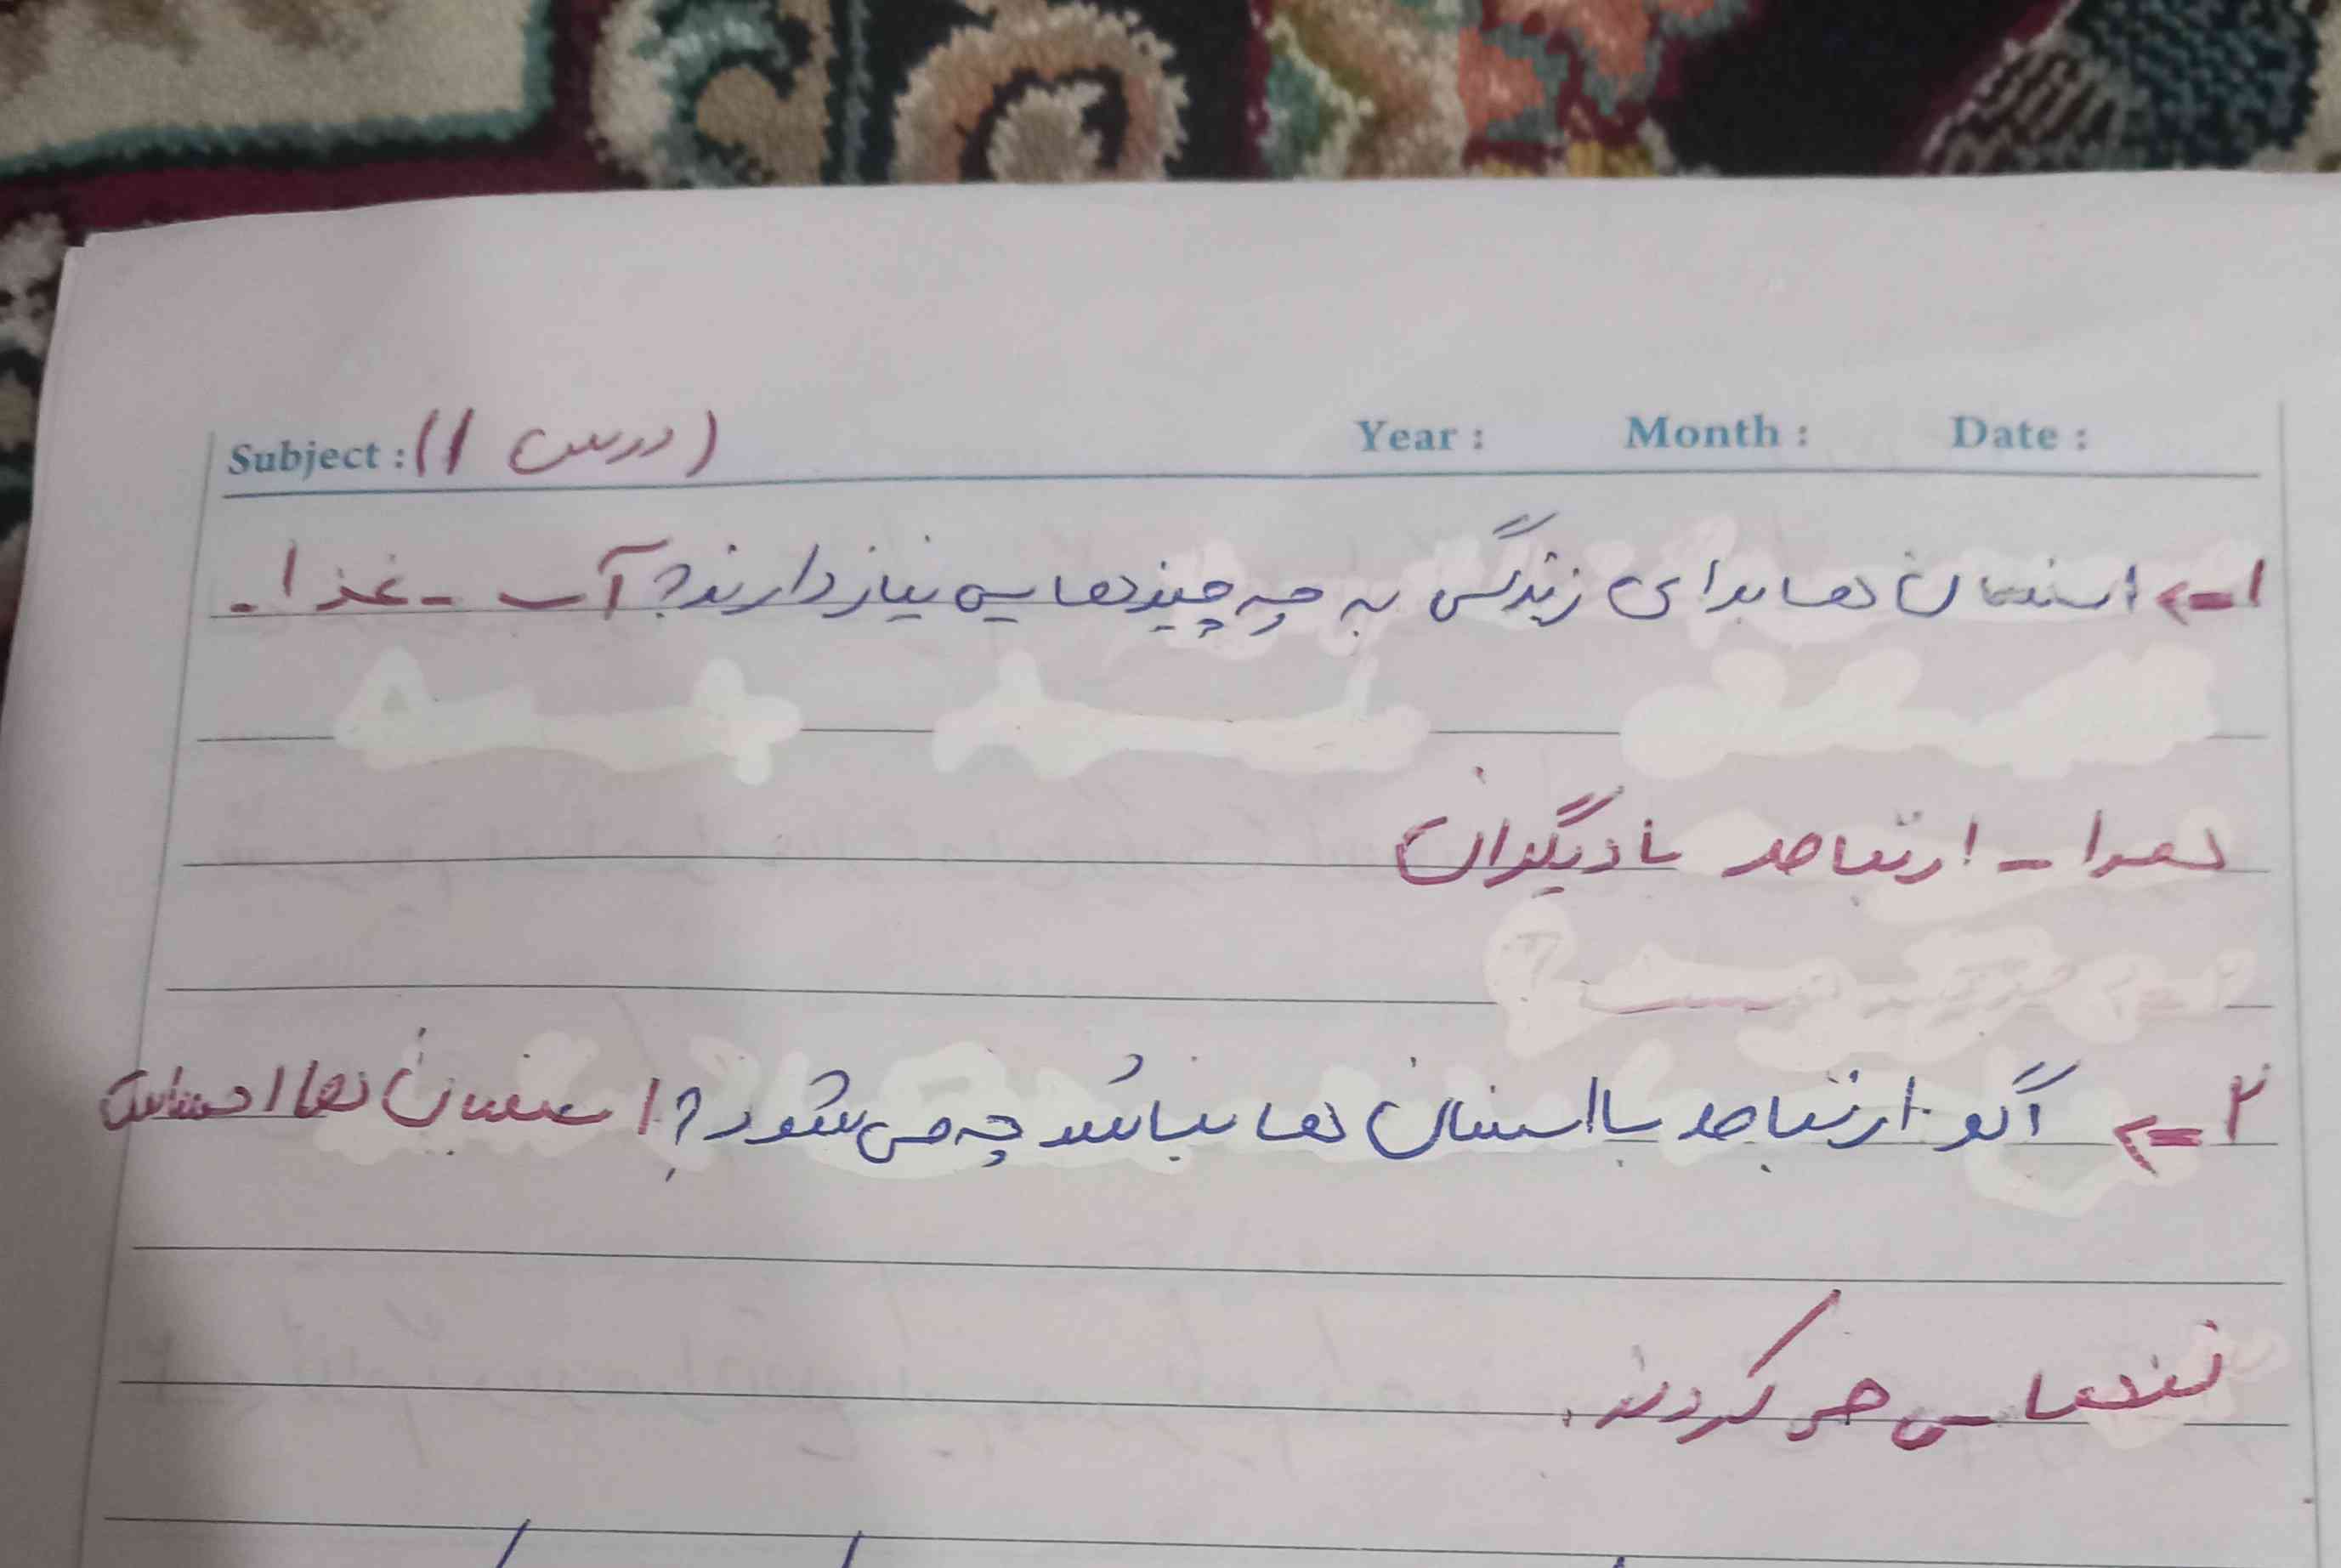 Subject: (درس 1) Year: Month: Date:
1=> انسان ها برای زندگی به چه چیزهایی نیاز دارند؟ آب - غذا -
هوا - ارتباط با دیگران
۲=> اگر ارتباط با انسان ها نباشد چه می شود؟ انسان ها احساس
تنهایی می کردند.